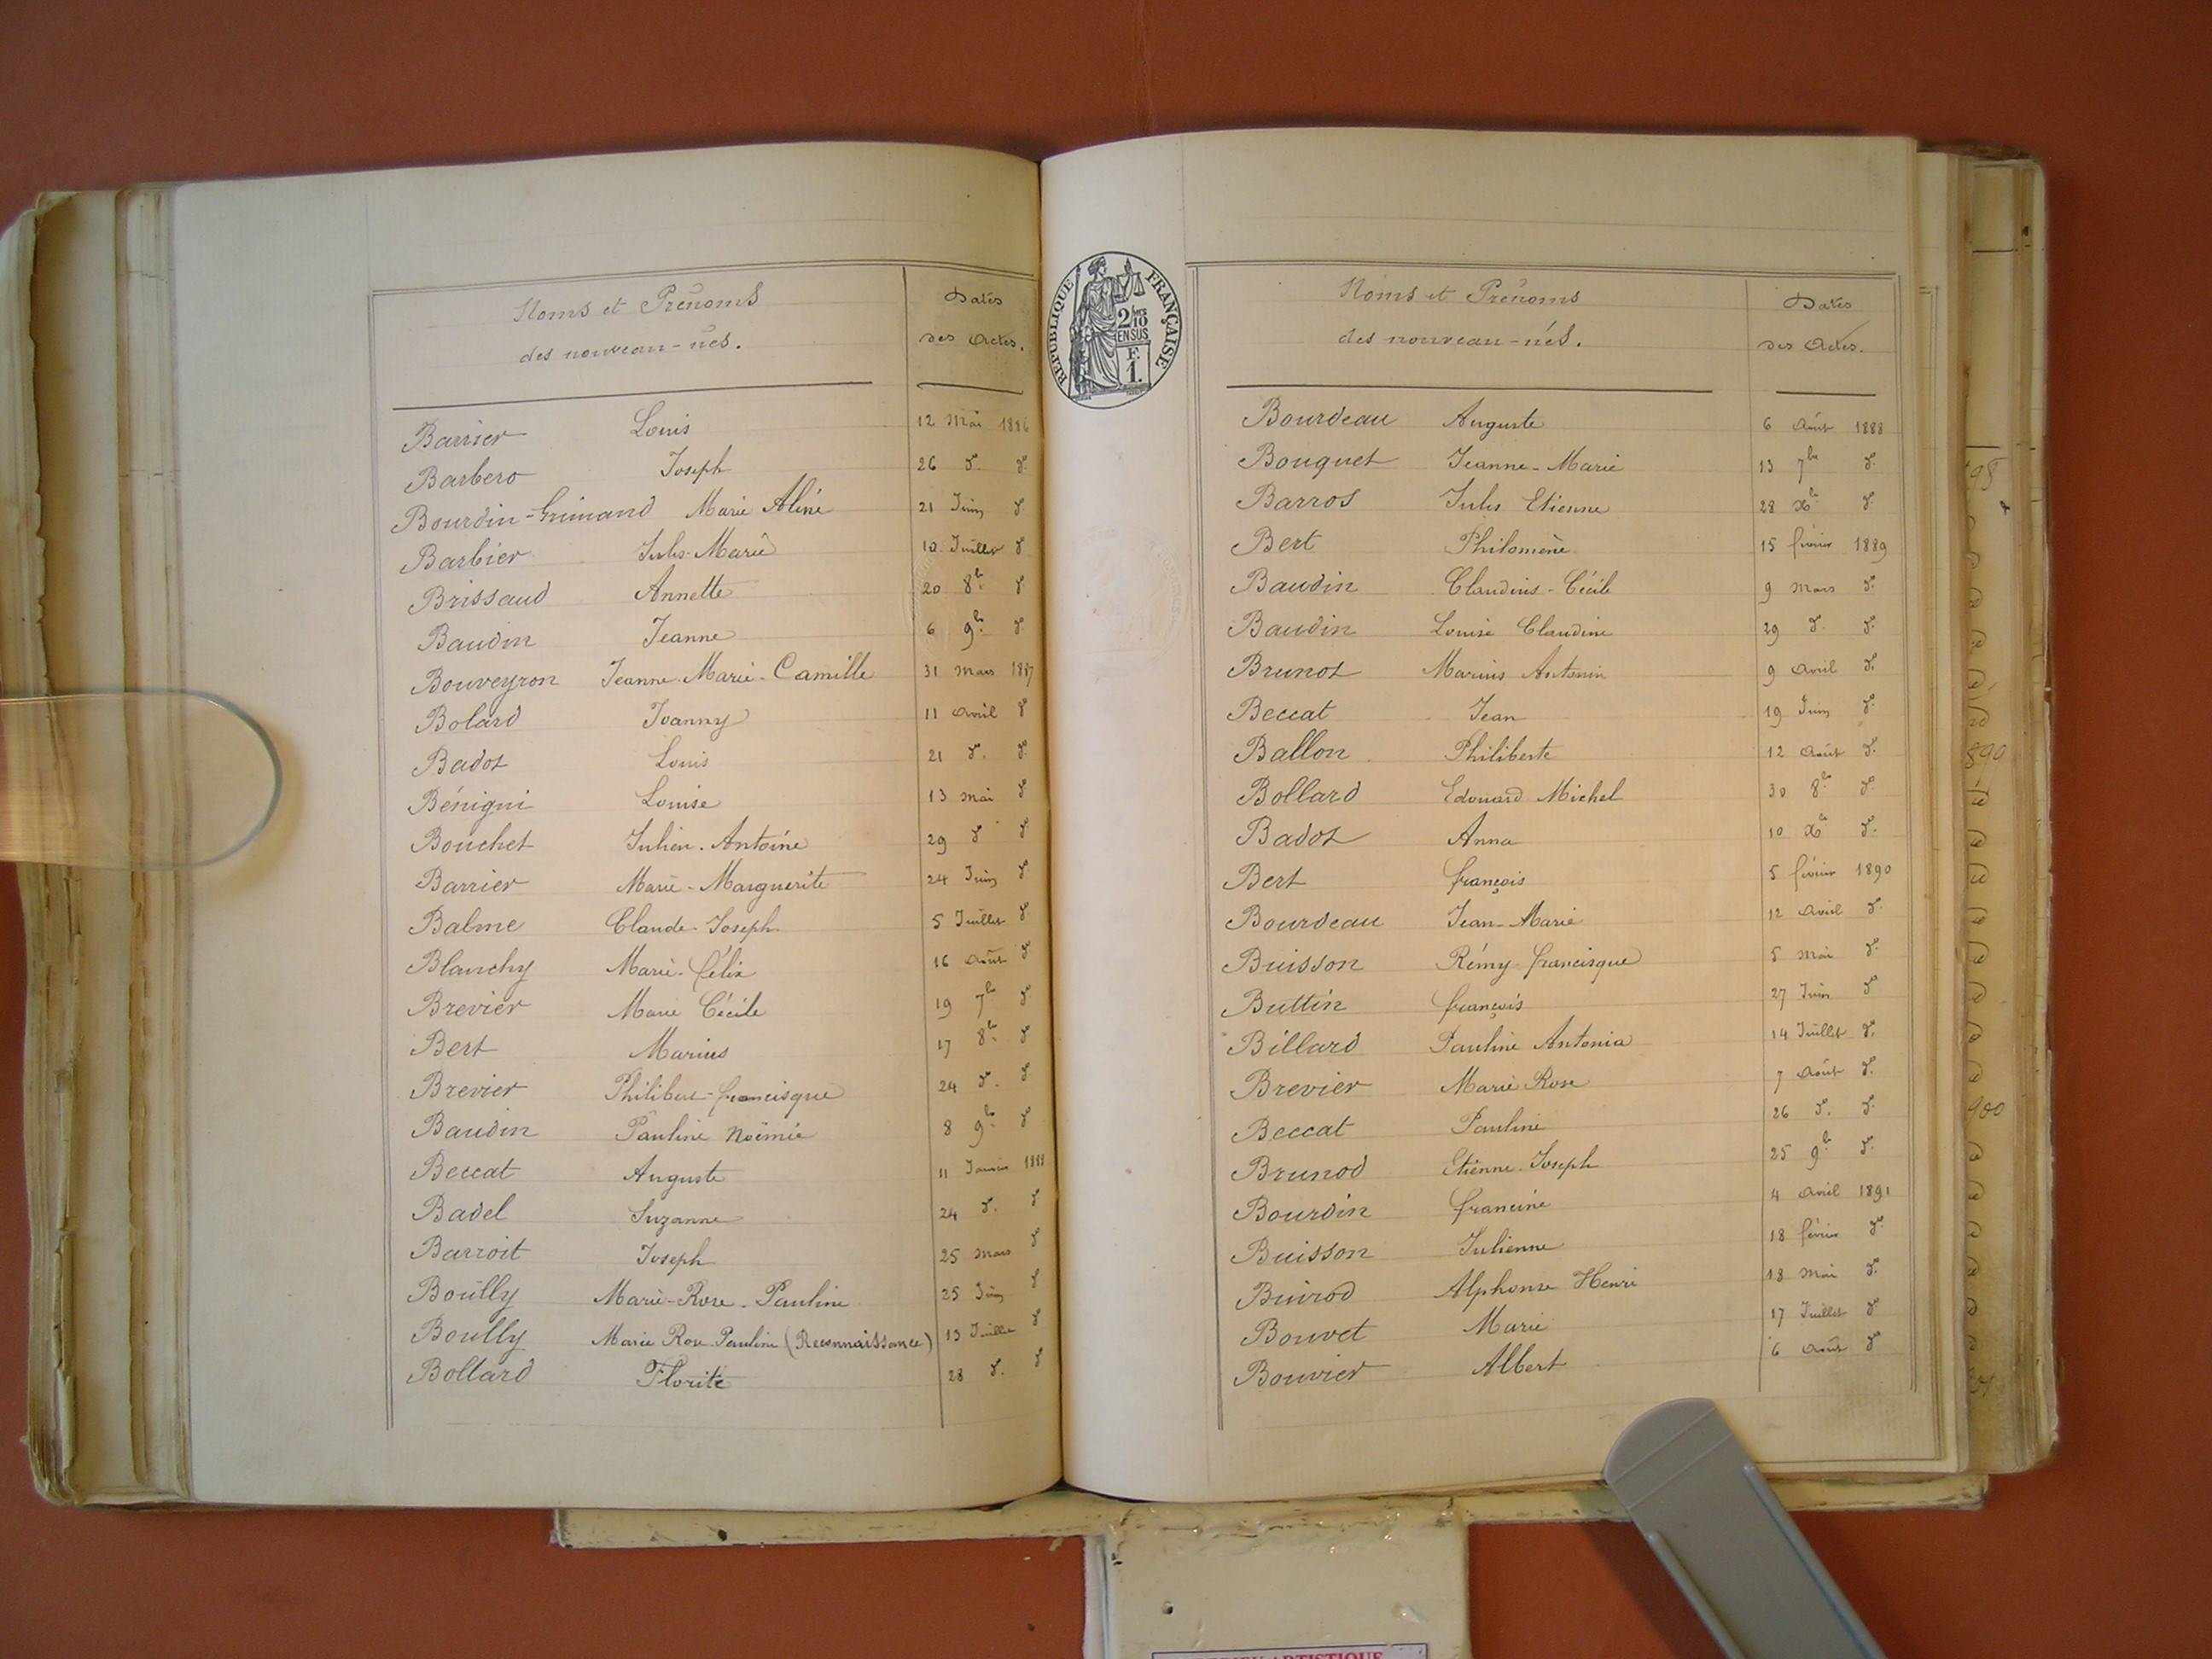 Noms et Prénoms
des nouveau-nés.
Dates
des Actes.
Barrier Louis 12 Mai 1886
Barbero Joseph 26 do. do.
Bourdin-Grimand Marie Aline 21 Juin do.
Barbier Jules-Marie 10 Juillet do
Brissaud Annette 20 8bre do.
Baudin Jeanne 6 9bre do.
Bouveyron Jeanne-Marie-Camille 31 Mars 1887
Bolard Joanny 11 Avril do
Badot Louis 21 do. do.
Bénigni Louise 13 Mai do
Bouchet Julien-Antoine 29 do do
Barrier Marie-Marguerite 24 Juin do
Balme Claude-Joseph 5 Juillet do
Blanchy Marie-Félix 16 Août do
Brevier Marie Cécile 19 7bre do
Bert Marius 17 8bre do
Brevier Philibert-francisque 24 do. do
Baudin Pauline Noëmie 8 9bre do
Beccat Auguste 11 Janvier 1888
Badel Suzanne 24 do. do
Barroit Joseph 25 Mars do
Bouilly Marie-Rose-Pauline 25 Juin do
Boully Marie Rose Pauline (Reconnaissance) 13 Juillet do
Bollard Florite 28 do. do
RÉPUBLIQUE FRANÇAISE
2/10
EN SUS
F.
1.
Noms et Prénoms
des nouveau-nés.
Dates
des Actes.
Bourdeau Auguste 6 Août 1888
Bouquet Jeanne-Marie 13 7bre do.
Barros Jules Etienne 28 Xbre do.
Bert Philomène 15 février 1889
Baudin Claudius-Cécile 9 Mars do.
Baudin Louise Claudine 29 do. do.
Brunot Marius Antonin 9 Avril do.
Beccat Jean 19 Juin do.
Ballon Philiberte 12 Août do.
Bollard Edouard Michel 30 8bre do.
Badot Anna 10 Xbre do.
Bert françois 5 février 1890
Bourdeau Jean-Marie 12 Avril do.
Buisson Rémy-francisque 5 Mai do.
Buttin françois 27 Juin do
Billard Pauline Antonia 14 Juillet do.
Brevier Marie Rose 7 Août do.
Beccat Pauline 26 do. do.
Brunod Etienne-Joseph 25 9bre do.
Bourdin francine 4 Avril 1891
Buisson Julienne 18 février do
Buirod Alphonse Henri 18 Mai do.
Bouvet Marie 17 Juillet do
Bouvier Albert 6 Août do
890
900
ARTISTIQUE